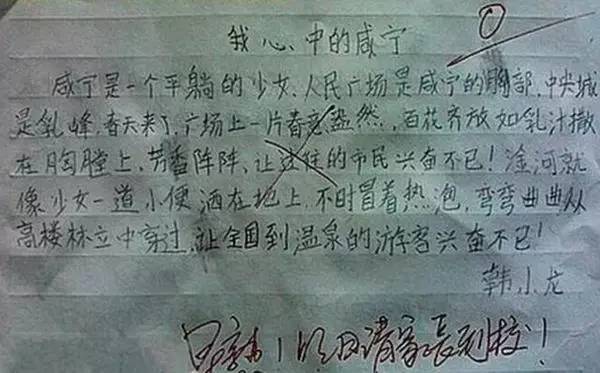 0
我心中的咸宁
咸宁是一个平躺的少女、人民广场是咸宁的胸部,中央城
是乳峰,春天来了,广场上一片春意盎然,百花齐放如乳汁撒
在胸膛上,芳香阵阵、让过往的市民兴奋不已!淦河就
像少女一道小便洒在地上,不时冒着热泡,弯弯曲曲从
高楼林立中穿过,让全国到温泉的游客兴奋不已!
韩小龙
！明日请家長到校！